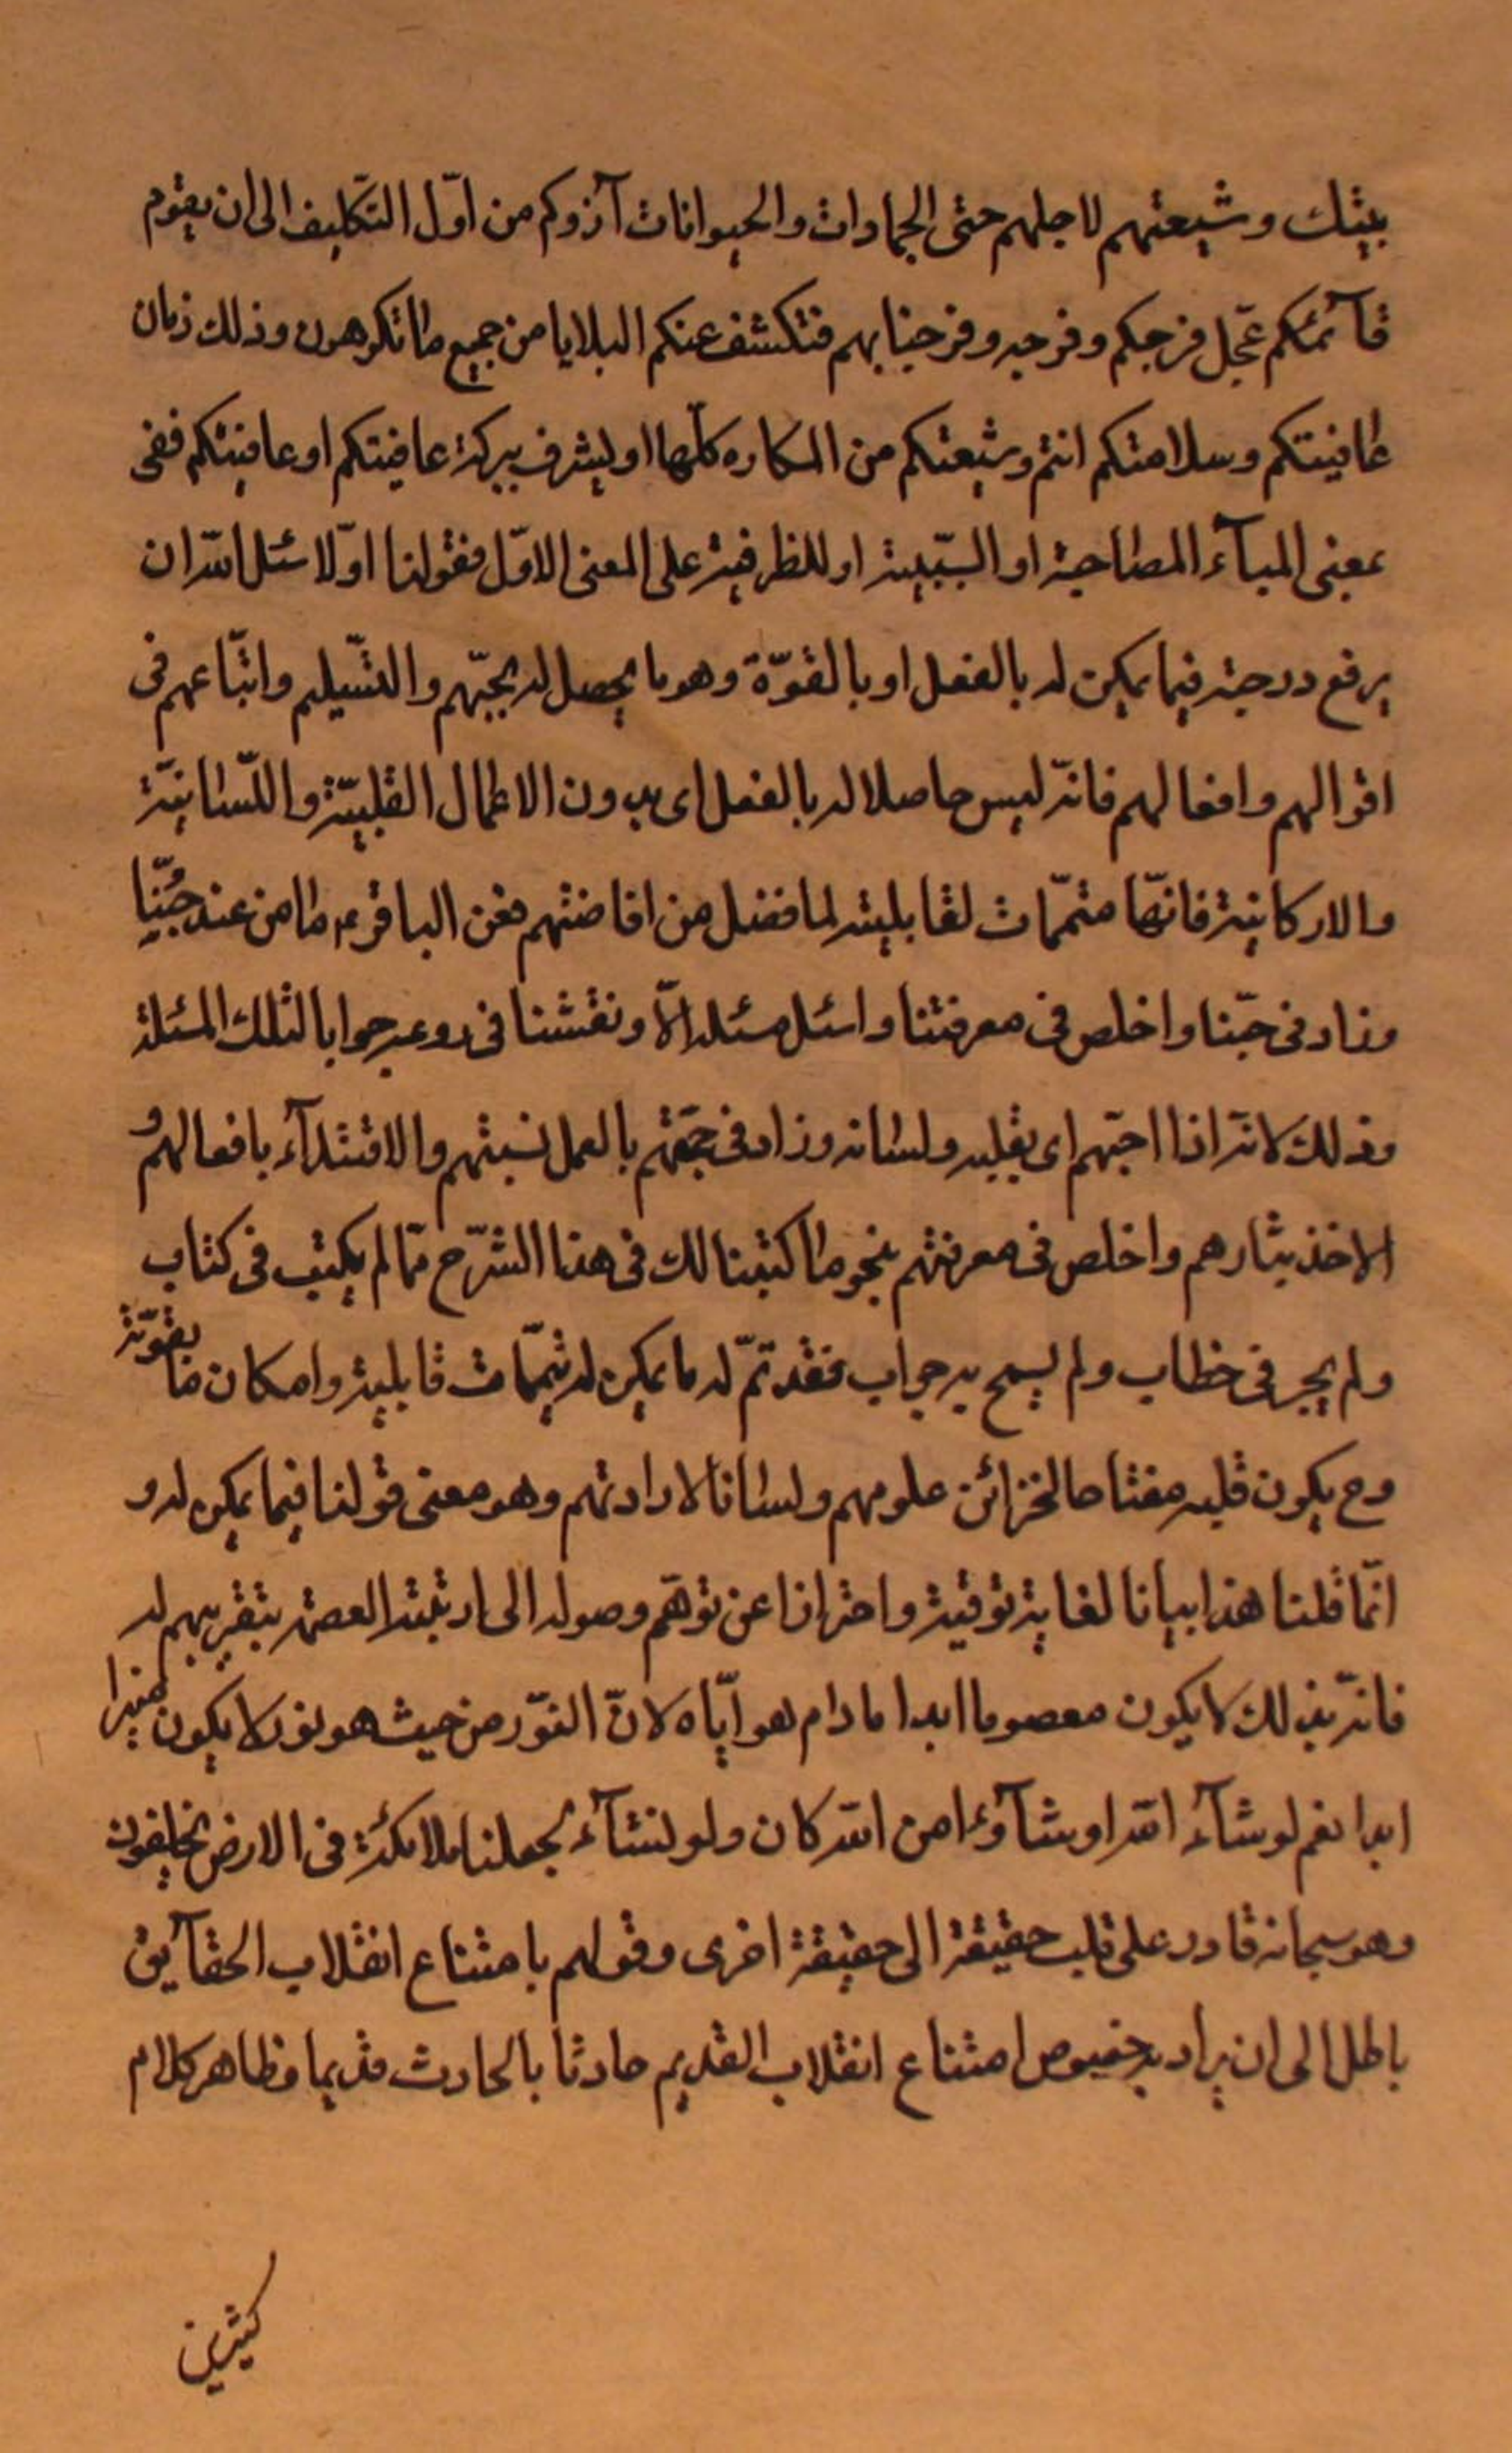 بيتك وشيعتهم لاجلهم حتى الجمادات والحيوانات آذوكم من اوّل التكليف الى ان يقوم
قآئمكم عجّل فرجكم وفرجه وفرجنا بهم فتكشف عنكم البلايا من جميع ما تكرهون وذلك زمان
عافيتكم وسلامتكم انتم وشيعتكم من المكاره كلّها او ليشرف ببركة عافيتكم او عافيتكم ففى
بمعنى البآء المصاحبة او السّببيّة او للظرفية على المعنى الاوّل فقولنا اوّلا سئل الله ان
يرفع درجته فيما يمكن له بالفعل او بالقوّة وهو ما يحصل له بحبّهم والتسليم واتّباعهم فى
اقوالهم وافعالهم فانّه ليس حاصلا له بالفعل اى بدون الاعمال القلبيّة واللّسانيّة
والاركانية فانّها متمّمات لقابليته لما فضل من افاضتهم فعن الباقر ع ما من عبد حُبّنا
وزاد فى حبّنا واخلص فى معرفتنا واسئل مسئلة الاّ ونفثنا فى روعه جوابا لتلك المسئلة
وذلك لانّه اذا احبّهم اى بقلبه ولسانه وزاد فى حبّهم بالعمل بسنتهم والاقتدآء بافعالهم و
الاخذ بآثارهم واخلص فى معرفتهم بنحو ما كتبنا لك فى هذا الشرح ممّا لم يكتب فى كتاب
ولم يجر فى خطاب ولم يسمح به جواب فقد تمّ له ما يمكن له بتمّمات قابلية وامكان ما بقوّته
وح يكون قلبه مفتاحا لخزائن علومهم ولسانا لارادتهم وهو معنى قولنا فيما يمكن له و
انّما قلنا هذا بيانا لغاية توقية واحترازا عن توهّم وصوله الى رتبة العصمة بتقريبهم له
فانّه بذلك لا يكون معصوما ابدا ما دام هو ايّاه لانّ النّور من حيث هو نور لا يكون منيرا
ابدا نعم لو شآء الله او شآؤا من الله كان ولو نشآء لجعلنا ملائكة فى الارض يخلفون
وهو سبحانه قادر على قلب حقيقة الى حقيقة اخرى وقولهم بامتناع انقلاب الحقآيق
باطل الى ان يراد به خصوص امتناع انقلاب القديم حادثا بالحادث قديما فظاهر كلام
كثيرين